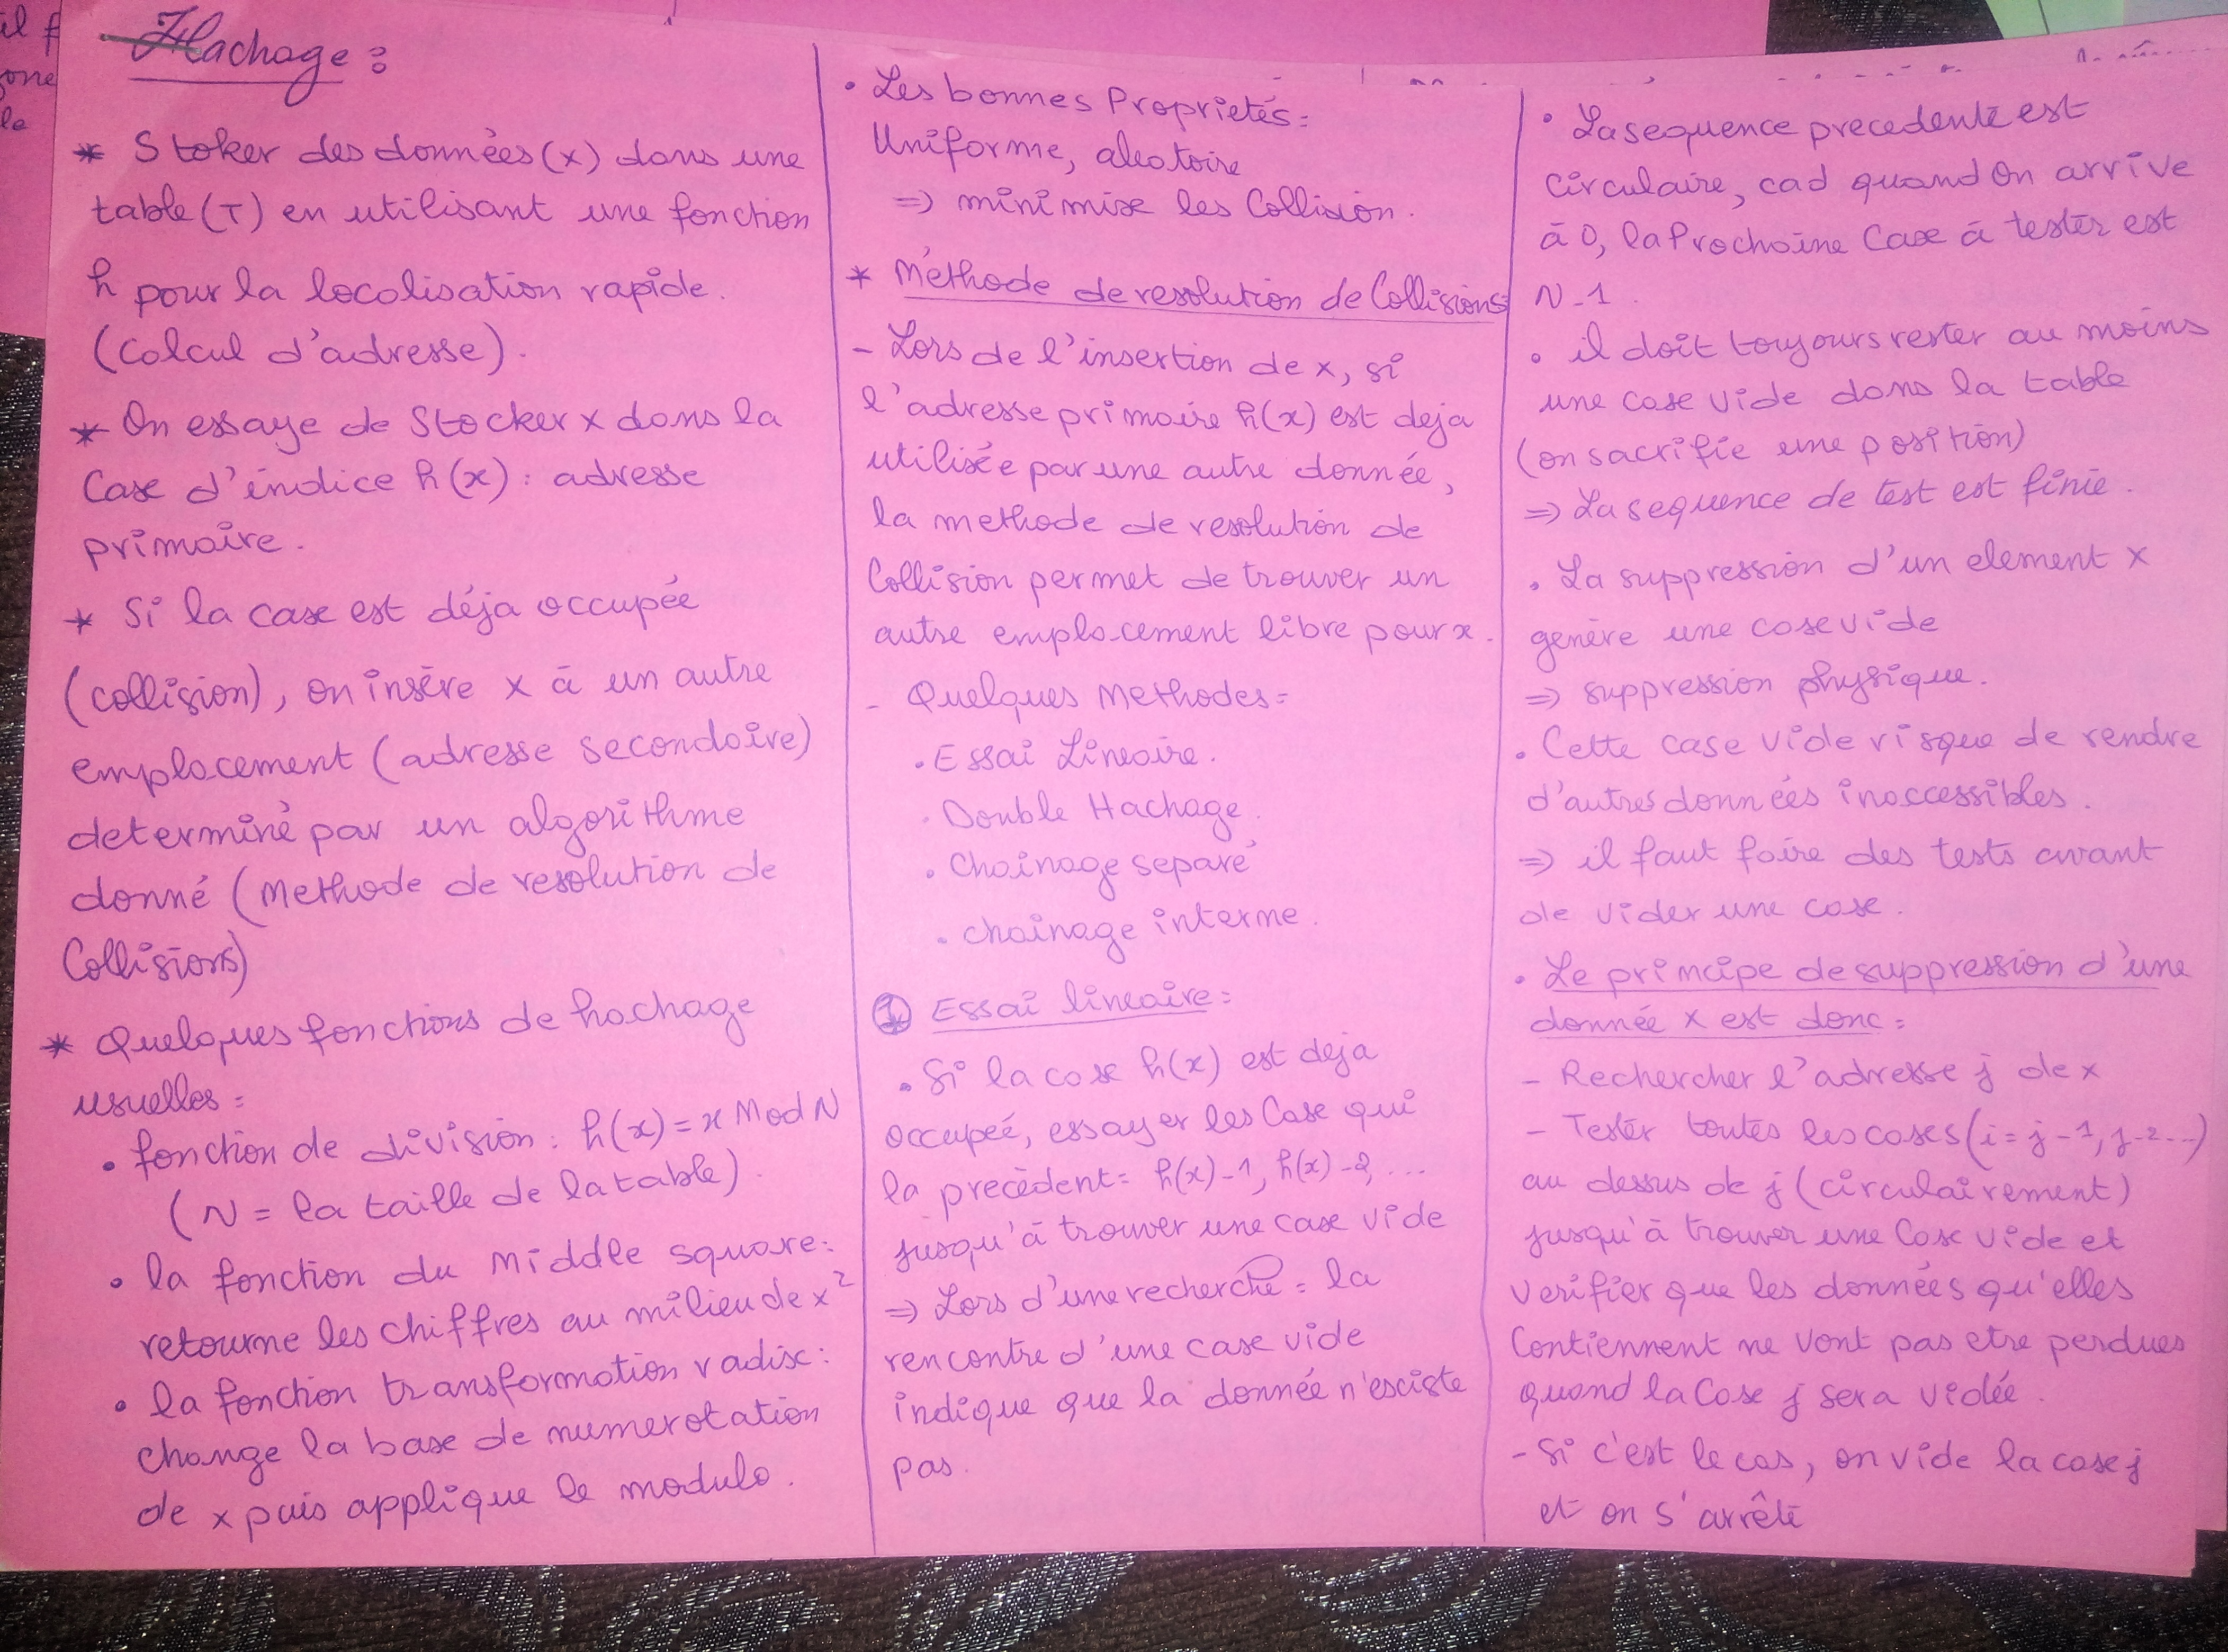 Hachage :
* Stoker des données (x) dans une
table (T) en utilisant une fonction
h pour la localisation rapide.
(calcul d'adresse).
* On essaye de Stocker x dans la
Case d'indice h(x) : adresse
primaire.
* Si la case est déja occupée
(collision), on insère x à un autre
emplacement (adresse secondaire)
determiné par un algorithme
donné (Methode de resolution de
Collisions)
* Quelques fonctions de hachage
usuelles :
• fonction de division : h(x) = x Mod N
(N = la taille de la table).
• la fonction du Middle square :
retourne les chiffres au milieu de x²
• la fonction transformation radix :
change la base de numerotation
de x puis applique le modulo.
• Les bonnes Proprietés :
Uniforme, aleatoire
=> minimise les Collision.
* Méthode de resolution de Collisions :
- Lors de l'insertion de x, si
l'adresse primaire h(x) est deja
utilisée par une autre donnée,
la methode de resolution de
Collision permet de trouver un
autre emplacement libre pour x.
- Quelques Methodes :
. Essai Lineaire.
. Double Hachage.
. Chainage separé
. chainage interne.
① Essai lineaire :
. Si la case h(x) est deja
occupeé, essayer les Case qui
la precèdent : h(x)-1, h(x)-2, ...
jusqu'à trouver une case vide
=> Lors d'une recherche : la
rencontre d'une case vide
indique que la donnée n'existe
pas.
• La sequence precedente est
circulaire, cad quand on arrive
à 0, la Prochaine Case à tester est
N-1.
• il doit toujours rester au moins
une case vide dans la table
(on sacrifie une position)
=> La sequence de test est finie.
. La suppression d'un element x
genère une case vide
=> suppression physique.
. Cette case vide risque de rendre
d'autres données inaccessibles.
=> il faut faire des tests avant
de vider une case.
. Le principe de suppression d'une
donnée x est donc :
- Rechercher l'adresse j de x
- Tester toutes les cases (i = j-1, j-2...)
au dessus de j (circulairement)
jusqu'à trouver une Case vide et
verifier que les données qu'elles
Contiennent ne vont pas etre perdues
quand la Case j sera vidée.
- Si c'est le cas, on vide la case j
et on s'arrête